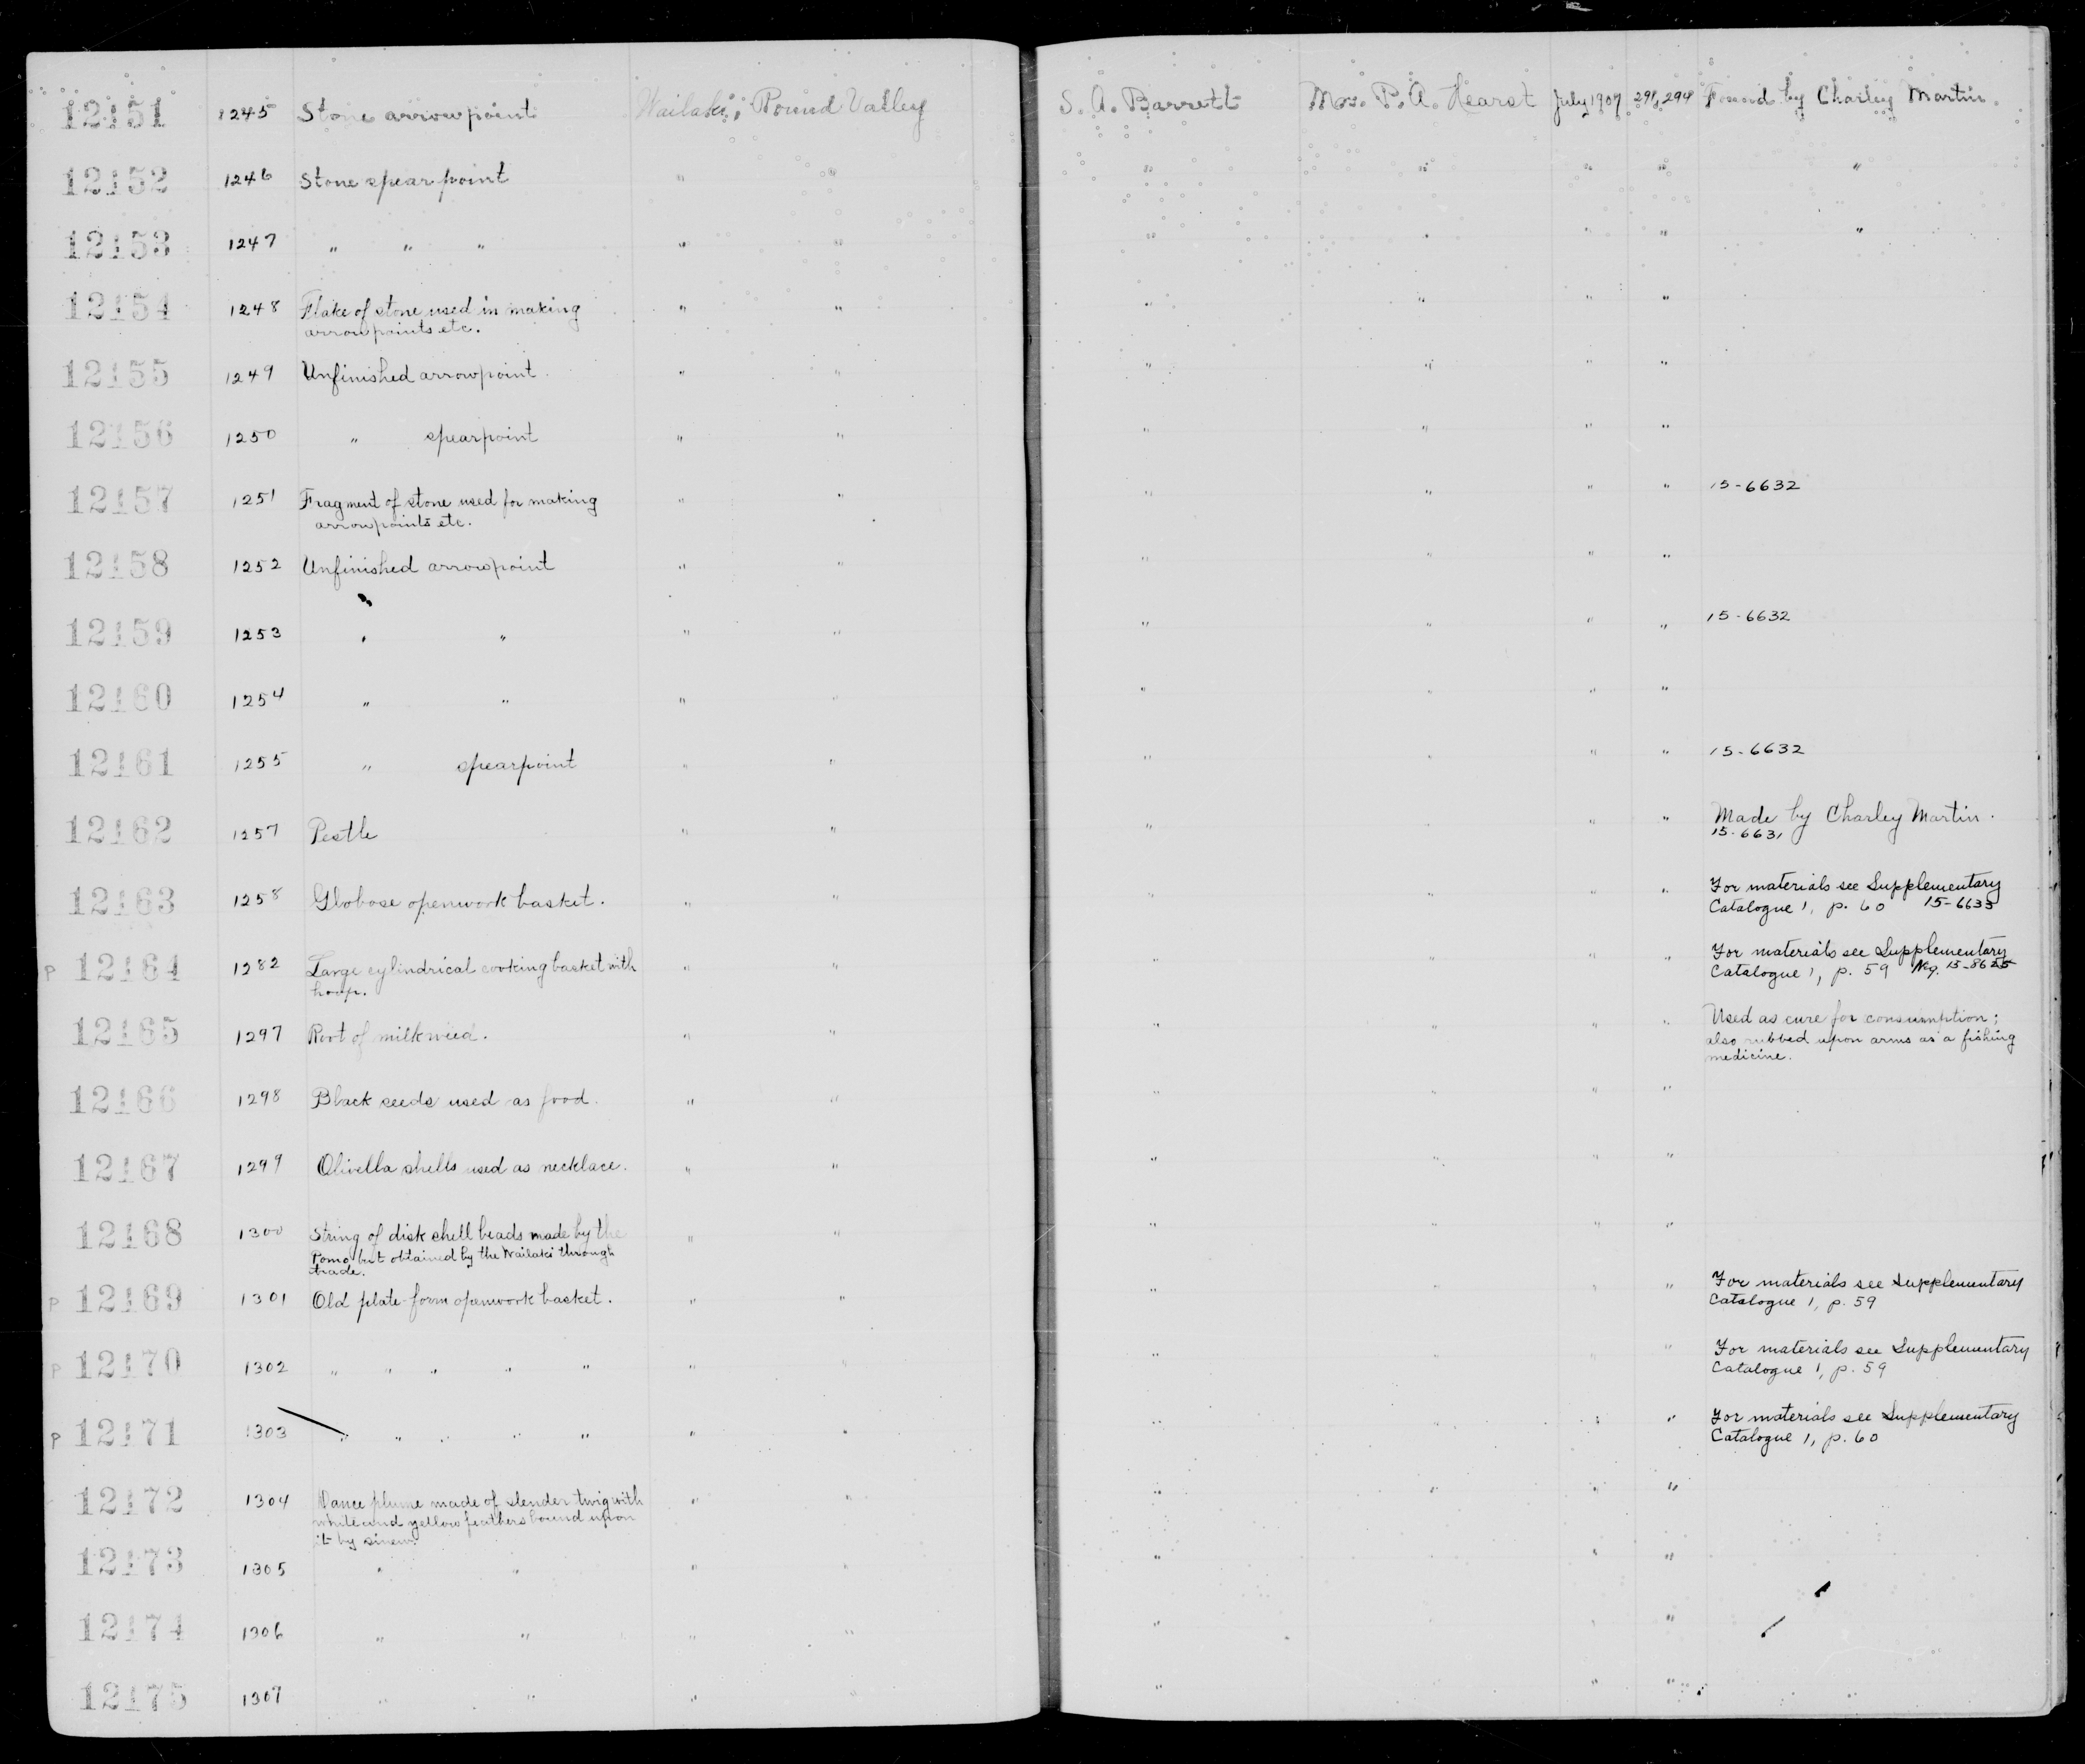 12151 1245 Stone arrowpoint Wailaki; Round Valley S. A. Barrett Mrs. P. A. Hearst July 1907 291, 294 Found by Charley Martin.
12152 1246 Stone spearpoint " " " " " " "
12153 1247 " " " " " " " " " "
12154 1248 Flake of stone used in making " " " " " "
arrowpoints etc.
12155 1249 Unfinished arrowpoint. " " " " " "
12156 1250 " spearpoint " " " " " "
12157 1251 Fragment of stone used for making " " " " " " 15-6632
arrowpoints etc.
12158 1252 Unfinished arrowpoint " " " " " "
12159 1253 " " " " " " " " 15-6632
12160 1254 " " " " " " " "
12161 1255 " spearpoint " " " " " " 15-6632
12162 1257 Pestle " " " " " " Made by Charley Martin.
15-6631
12163 1258 Globose openwork basket. " " " " " " For materials see Supplementary
Catalogue 1, p. 60 15-6633
P 12164 1282 Large cylindrical cooking basket with " " " " " " For materials see Supplementary
hoop. Catalogue 1, p. 59 Neg. 15-8625
12165 1297 Root of milkweed. " " " " " " Used as cure for consumption;
also rubbed upon arms as a fishing
medicine.
12166 1298 Black seeds used as food. " " " " " "
12167 1299 Olivella shells used as necklace. " " " " " "
12168 1300 String of disk shell beads made by the " " " " " "
Pomo but obtained by the Wailaki through
trade.
P 12169 1301 Old plate-form openwork basket. " " " " " " For materials see Supplementary
Catalogue 1, p. 59
P 12170 1302 " " " " " " " " " " " For materials see Supplementary
Catalogue 1, p. 59
P 12171 1303 " " " " " " " " " " " For materials see Supplementary
Catalogue 1, p. 60
12172 1304 Dance plume made of slender twig with " " " " " "
white and yellow feathers bound upon
it by sinew.
12173 1305 " " " " " " " "
12174 1306 " " " " " " " "
12175 1307 " " " " " " "